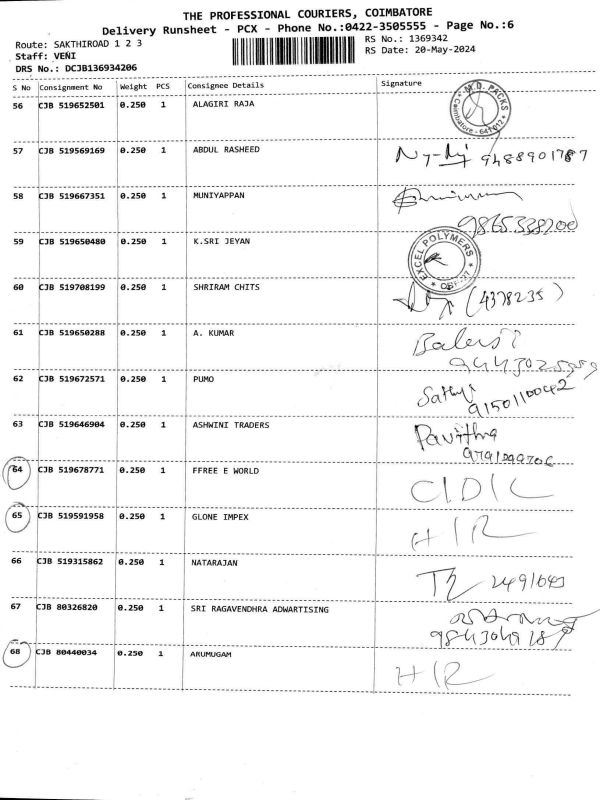 THE PROFESSIONAL COURIERS, COIMBATORE
Delivery Runsheet - PCX - Phone No.:0422-3505555 - Page No.:6
Route: SAKTHIROAD 1 2 3
RS No.: 1369342
Staff: VENI
RS Date: 20-May-2024
DRS No.: DCJB136934206
S No Consignment No Weight PCS Consignee Details Signature
56 CJB 519652501 0.250 1 ALAGIRI RAJA M.D. PACKS Coimbatore - 641012
57 CJB 519569169 0.250 1 ABDUL RASHEED 9488901787
58 CJB 519667351 0.250 1 MUNIYAPPAN
9865338200
59 CJB 519650480 0.250 1 K.SRI JEYAN EXCEL POLYMERS
60 CJB 519708199 0.250 1 SHRIRAM CHITS (4378235)
61 CJB 519650288 0.250 1 A. KUMAR
62 CJB 519672571 0.250 1 PUMO Sathy
9150110042
63 CJB 519646904 0.250 1 ASHWINI TRADERS Pavithra
64 CJB 519678771 0.250 1 FFREE E WORLD C/D/C
65 CJB 519591958 0.250 1 GLONE IMPEX H/R
66 CJB 519315862 0.250 1 NATARAJAN
67 CJB 80326820 0.250 1 SRI RAGAVENDHRA ADWARTISING
68 CJB 80440034 0.250 1 ARUMUGAM H/R